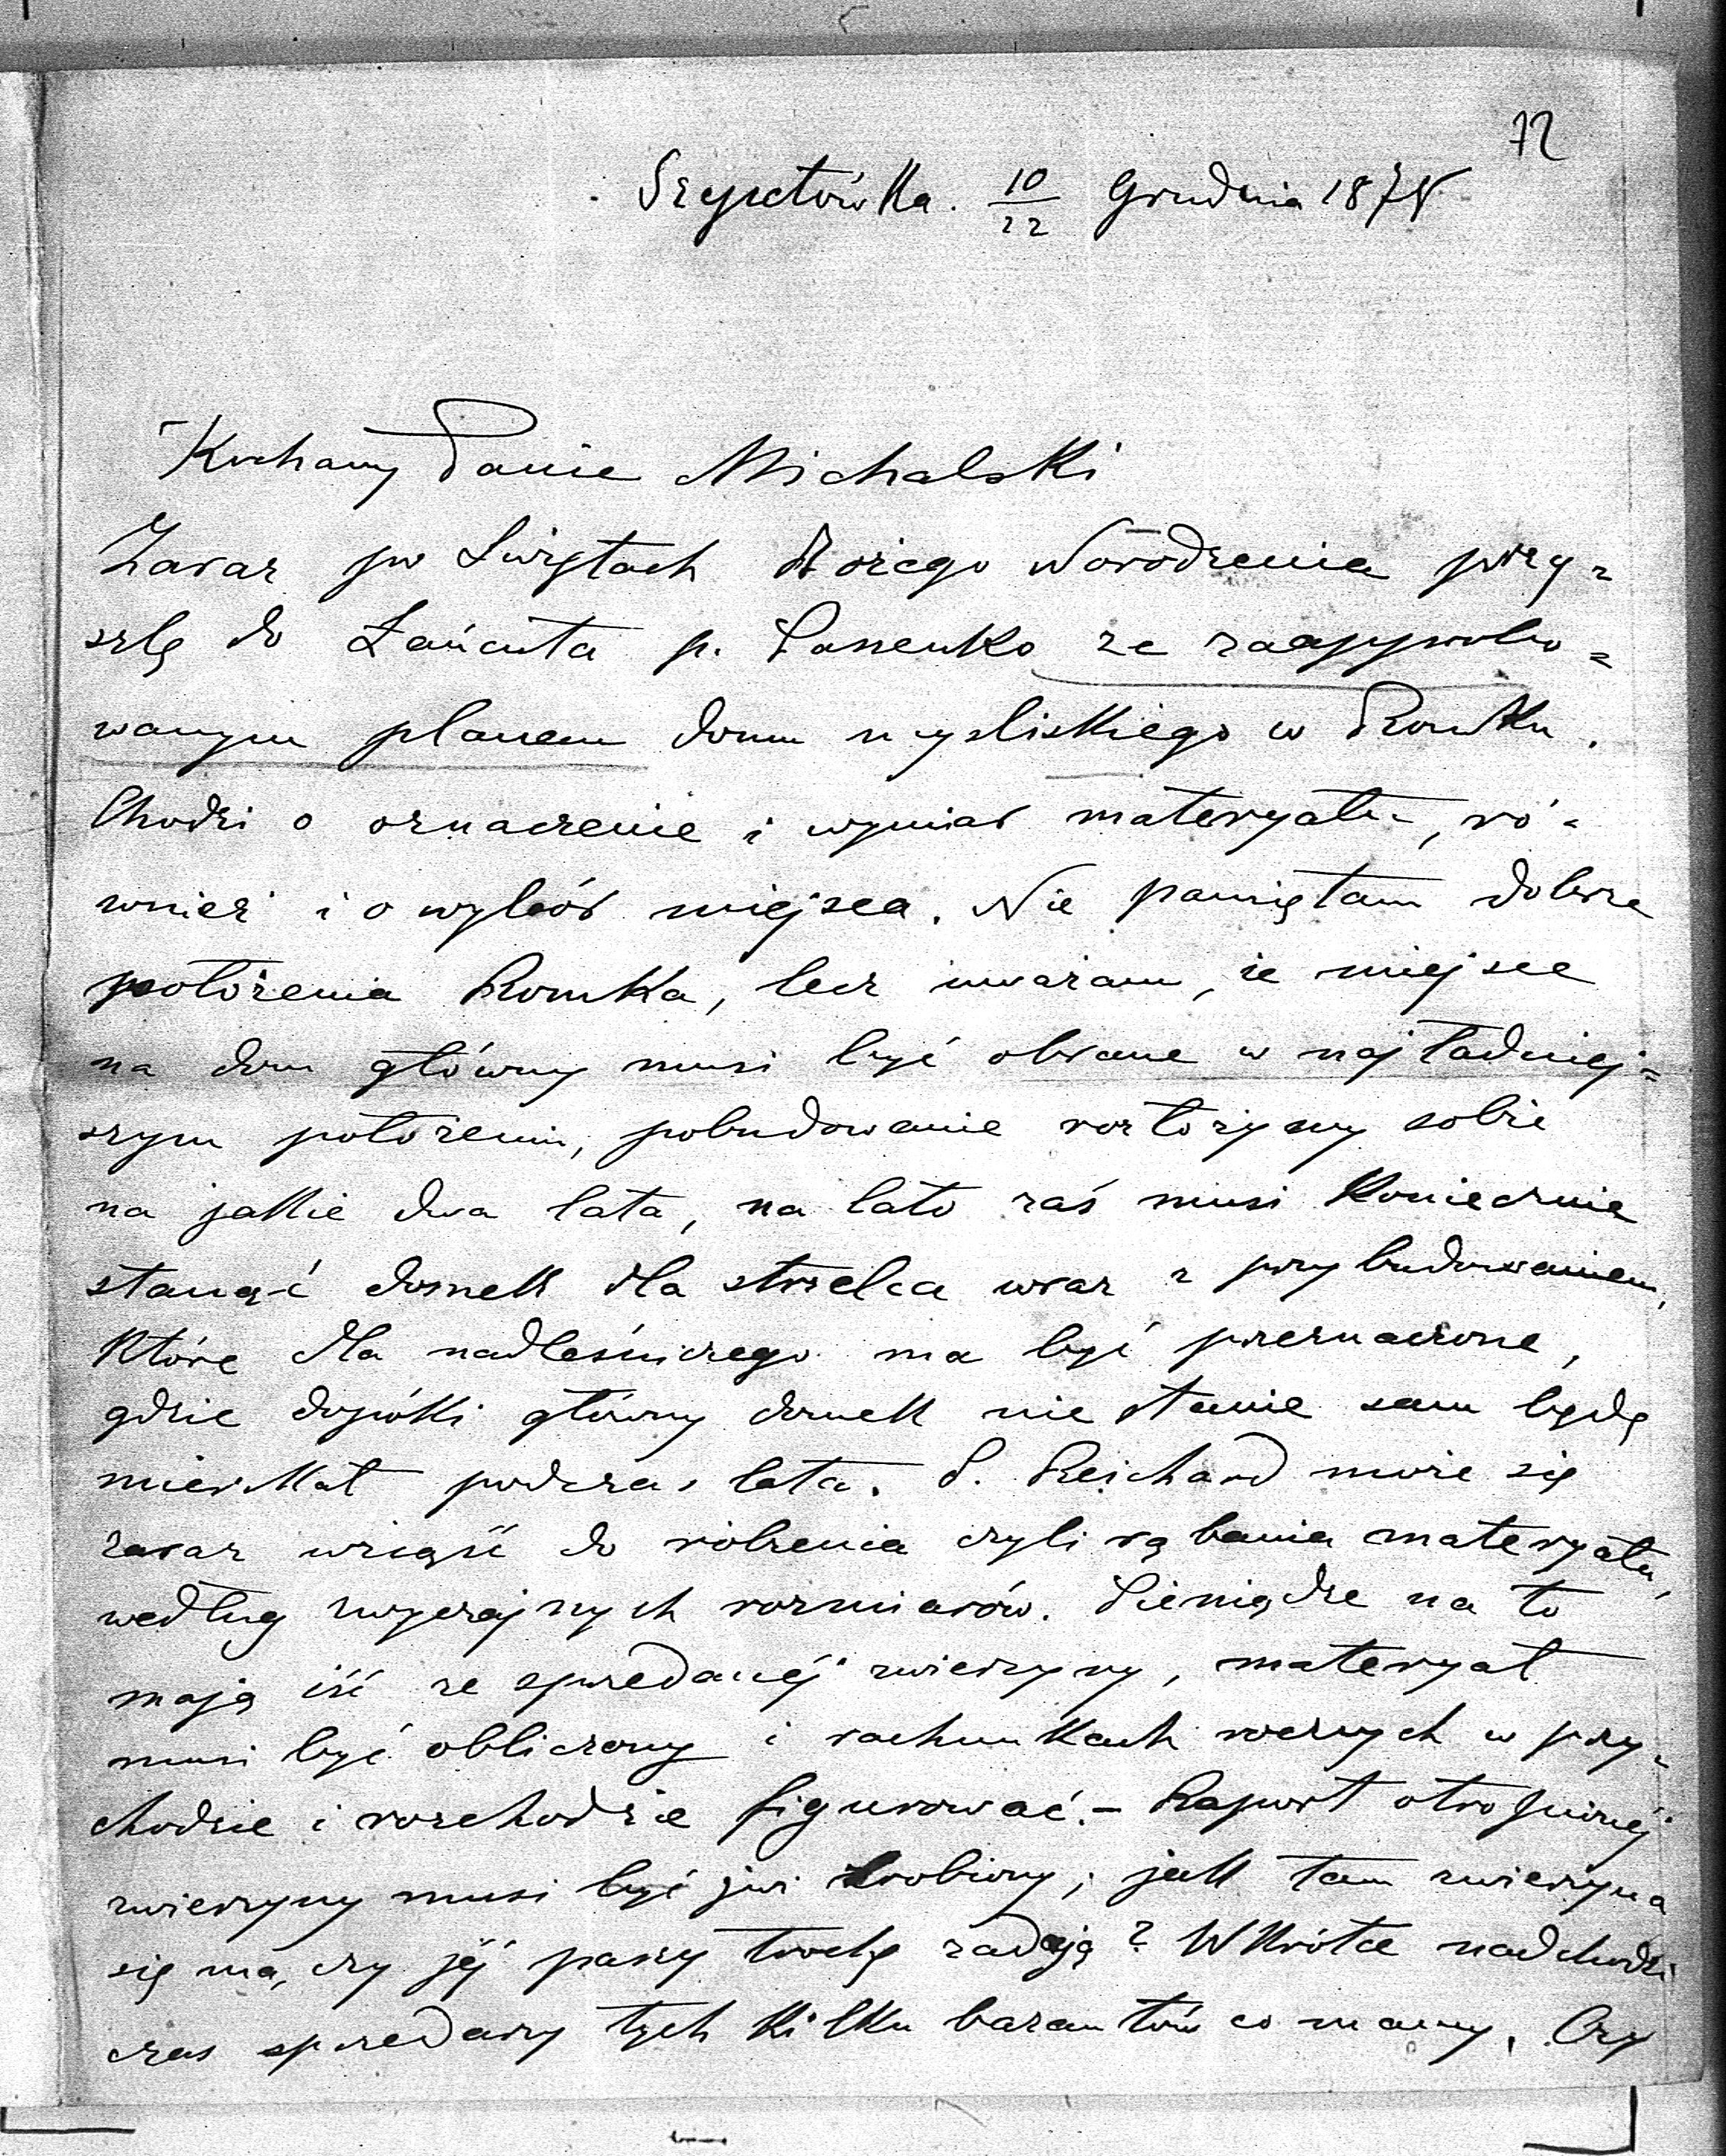 72
Szepetówka. 10/22 Grudnia 1878
Kochany Panie Michalski
Zaraz po Świętach Bożego Narodzenia przy=
szlę do Łańcuta p. Passenko ze zaapprobo=
wanym planem domu myśliskiego w Romku.
Chodzi o oznaczenie i wymiar materyału, ró=
wnież i o wybór miejsca. Nie pamiętam dobrze
położenia Romka, lecz uważam, że miejsce
na dom główny musi być obrane w najładniej=
szym położeniu, pobudowanie rozłożymy sobie
na jakie dwa lata, na lato zaś musi koniecznie
stanąć domek dla strzelca wraz z przybudowaniem,
które dla nadleśniczego ma być przeznaczone,
gdzie dopóki główny domek nie stanie sam będę
mieszkał podczas lata. P. Reichard może się
zaraz wziąść do robienia czyli rąbania materyału,
według zwyczajnych rozmiarów. Pieniądze na to
mają iść ze sprzedanéj zwierzyny, materyał
musi być obliczony i rachunkach rocznych w przy=
chodzie i rozchodzie figurować.- Raport
zwierzyny musi być już zrobiony; jak tam zwierzyna
się ma, czy jéj paszy trochę zadają? Wkrótce nadchodzi
czas sprzedaży tych kilku bażantów co mamy. Czy